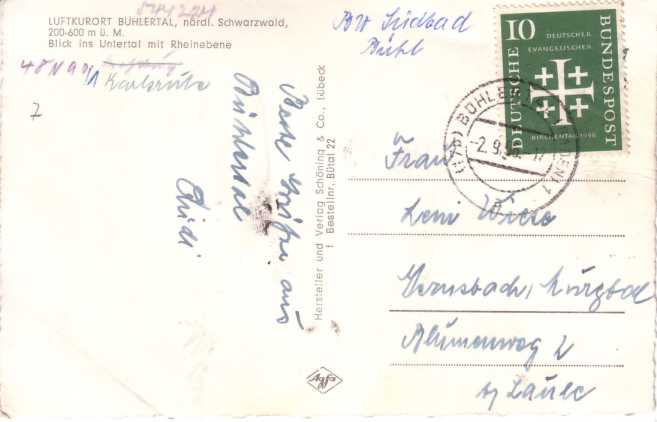 LUFTKURORT BÜHLERTAL, nördl. Schwarzwald,
200-600 m ü. M.
Blick ins Untertal mit Rheinebene
Karlsruhe
7
BW Südbad
Bühl
Beste Grüße aus
Bühlertal
Hersteller und Verlag Schöning & Co., Lübeck
! Bestellnr. Bütal 22
Agfa
10
DEUTSCHER
EVANGELISCHER
KIRCHENTAG 1956
DEUTSCHE
BUNDESPOST
(17b) BÜHLERTAL (BADEN) 1
-2.9.56.-17
Frau
Leni
Gernsbach, Murgtal
Blumenweg 2